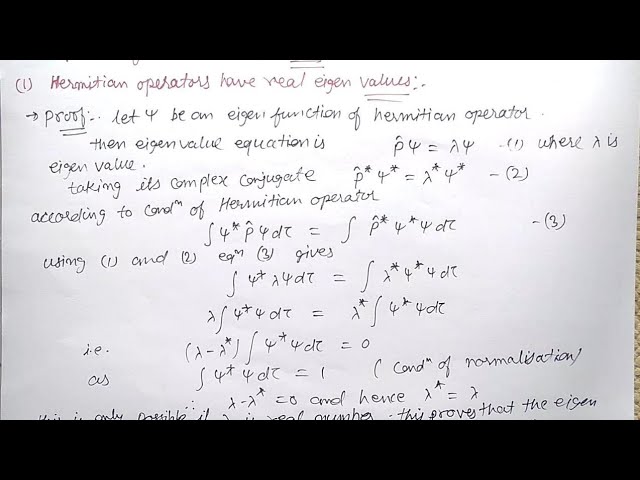 (1) Hermitian operators have real eigen values:.
→ Proof:. let ψ be an eigen function of hermitian operator.
then eigenvalue equation is p̂ψ = λψ -(1) where λ is
eigen value.
taking its complex conjugate p̂*ψ* = λ*ψ* -(2)
according to condⁿ of Hermitian operator
∫ψ* p̂ψdτ = ∫ p̂*ψ*ψdτ -(3)
using (1) and (2) eqⁿ (3) gives
∫ψ* λψdτ = ∫λ*ψ*ψdτ
λ∫ψ*ψdτ = λ*∫ψ*ψdτ
i.e. (λ-λ*)∫ψ*ψdτ = 0
as ∫ψ*ψdτ = 1 (condⁿ of normalisation)
∴ λ-λ* = 0 and hence λ* = λ
this is only possible if λ is real number. this proves that the eigen